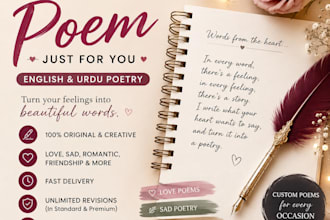 Poem
JUST FOR YOU
ENGLISH & URDU POETRY
Turn your feelings into
beautiful words.
100% ORIGINAL & CREATIVE
LOVE, SAD, ROMANTIC,
FRIENDSHIP & MORE
FAST DELIVERY
UNLIMITED REVISIONS
(In Standard & Premium)
Words from the heart
In every word,
there's a feeling,
in every feeling,
there's a story.
I write what your
heart wants to say,
and turn it into
a poetry.
LOVE POEMS
SAD POETRY
CUSTOM POEMS
for every
OCCASION